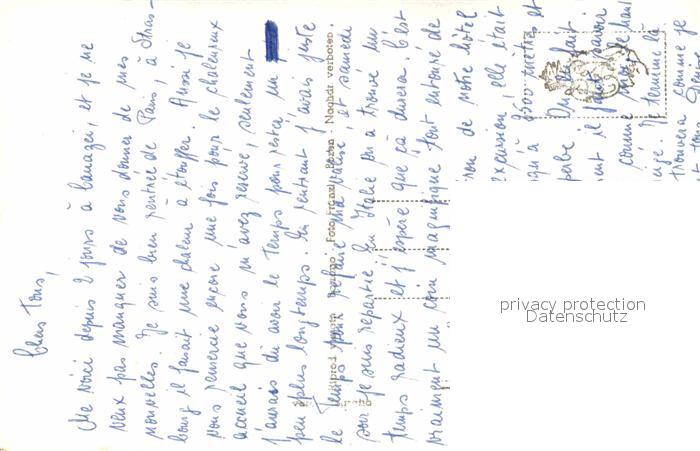 Chers Tous,
Me voici depuis 2 jours à Canazei, et je ne
veux pas manquer de vous donner de mes
nouvelles. Je suis bien rentrée de Paris, à Stras-
bourg il faisait une chaleur à étouffer. Aussi je
vous remercie encore une fois pour le chaleureux
accueil que vous m'avez réservé, seulement
j'aurais dû avoir le temps pour rester un
peu plus longtemps. En rentrant j'avais juste
le temps pour refaire ma valise, et samedi
soir je suis repartie. En Italie on a trouvé un
temps radieux et j'espère que çà durera. C'est
vraiment un coin magnifique tout entouré de
de notre hôtel
excursion, elle était
qu'à 3500 mètres et
On fait
il faut
comme
Je termine là
trouvera comme je
Foto Franzl - Bozen - Nachdr. verboten.
privacy protection
Datenschutz